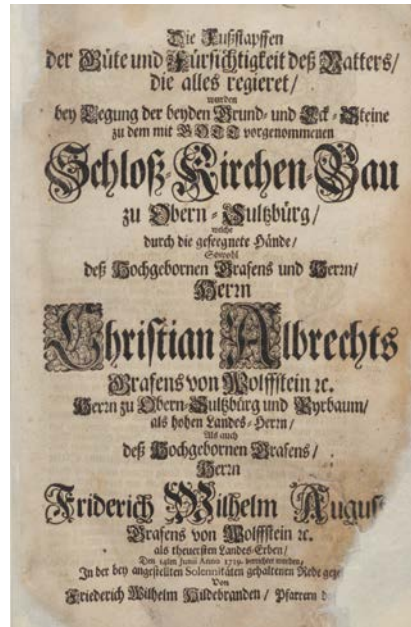 Die Fußstapffen
der Güte und Fürsichtigkeit deß Vatters/
die alles regieret/
wurden
bey Legung der beyden Grund- und Eck-Steine
zu dem mit GOTT vorgenommenen
Schloß-Kirchen-Bau
zu Obern-Sultzbürg/
welche
durch die gesegnete Hände/
Sowohl
deß Hochgebornen Grafens und Herrn/
Herrn
Christian Albrechts
Grafens von Wolffstein ꝛc.
Herrn zu Obern-Sultzbürg und Pyrbaum/
als hohen Landes-Herrn/
Als auch
deß Hochgebornen Grafens/
Herrn
Friderich Wilhelm August
Grafens von Wolffstein ꝛc.
als theuersten Landes-Erben/
Den 14ten Junii Anno 1719. verrichtet worden/
In der bey angestellten Solennitäten gehaltenen Rede
Von
Friederich Wilhelm Hildebranden / Pfarrern